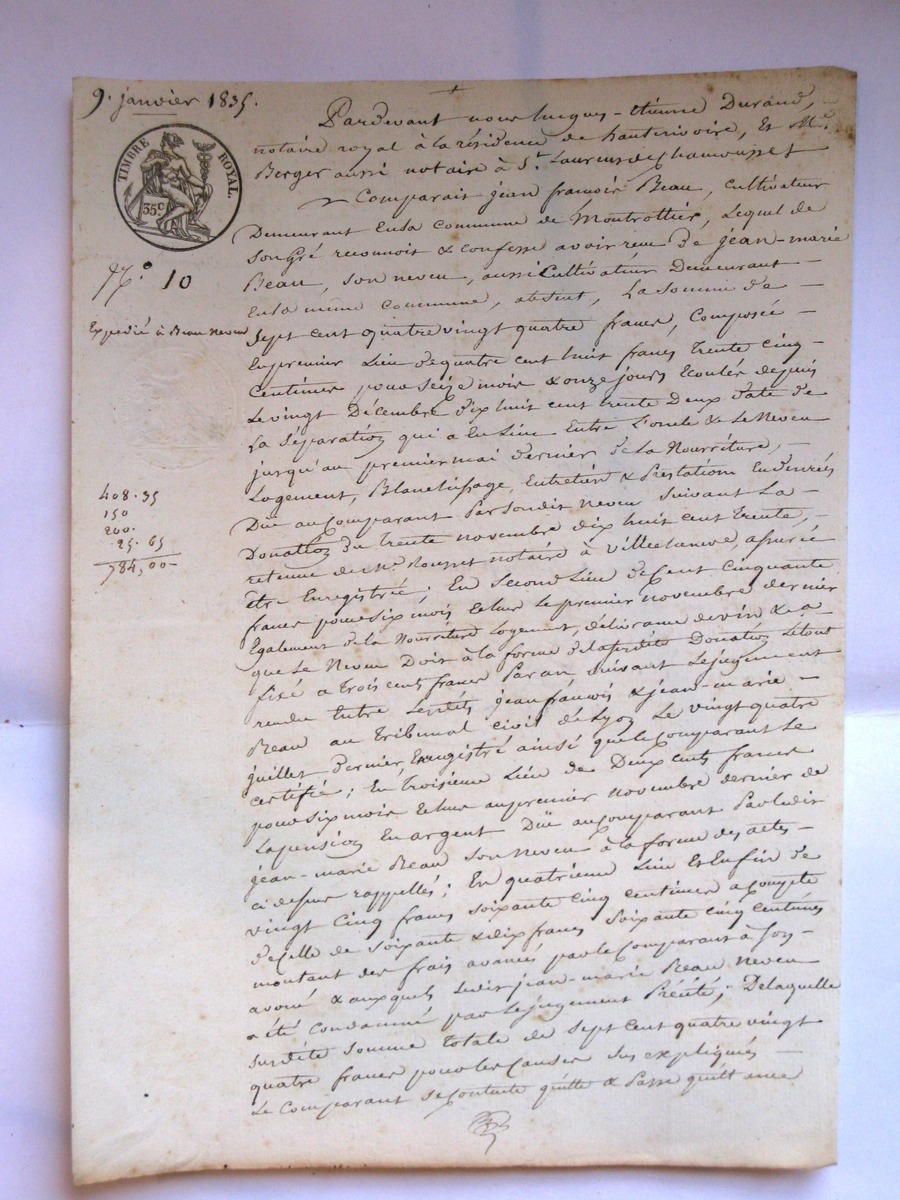 9. janvier 1835.
TIMBRE ROYAL
35 c.
N.º 10
Expedié à Beau neveu
408.35
150
200.
25.65
784,00
Pardevant nous Jucques-étienne Durand,
notaire royal à la résidence de hauterivoire, et Me.
Berger aussi notaire à St. Laurens de Chamousset
Comparait jean françois Beau, cultivateur
Demeurant En la commune de Montrottier, Lequel de
son Gré reconnoit & confesse avoir reçu de jean-marie
Beau, son neveu, aussi Cultivateur Demeurant
En la même commune, absent, La somme de
sept cent quatre vingt quatre francs, Composée
En premier Lieu de quatre cent huit francs trente cinq
Centimes pour seize mois & onze jours Ecoulés depuis
Le vingt Décembre dix huit cent trente Deux date de
La séparation qui a Eu Lieu Entre L'oncle & Le Neveu
jusqu'au premier mai dernier de La Nourriture,
Logement, Blanchissage, Entretien & Prestations En denrées
Dûe au Comparant Par Son dit Neveu suivant La
Donation du trente novembre dix huit cent trente,
retenue de Me. Rousset notaire à villechenève, assurée
être Enregistrée; En Second Lieu de Cent Cinquante
francs pour six mois Echus Le premier novembre dernier
Egalement de la Nourriture Logement, délivrance de vin &. a
que Le Neveu Doit à la forme de la susdite Donation Le tout
fixé a trois cents francs Par an suivant Le jugement
rendu Entre Lesdits jean françois & jean-marie
Beau au Tribunal civil de Lyon Le vingt quatre
juillet Dernier, Enregistré ainsi que le Comparant Le
certifie; En Troisieme Lieu de Deux cents francs
pour six mois Echus au premier novembre dernier de
La pension En argent Dûe au Comparant Par ledit
jean-marie Beau son Neveu à la forme des actes
ci dessus rappellés; En quatrieme Lieu Et Enfin de
vingt Cinq francs soixante Cinq centimes a Compte
de Celle de soixante & dix francs Soixante Cinq Centimes
montant des frais avancés par le Comparant à Son
avoué & auxquels Ledit jean-marie Beau Neveu
a été Condamné par Le jugement Précité; De laquelle
susdite somme totale de sept cent quatre vingt
quatre francs pour les Causes Sus expliquées
Le Comparant se Contente quitte & Passe quittance